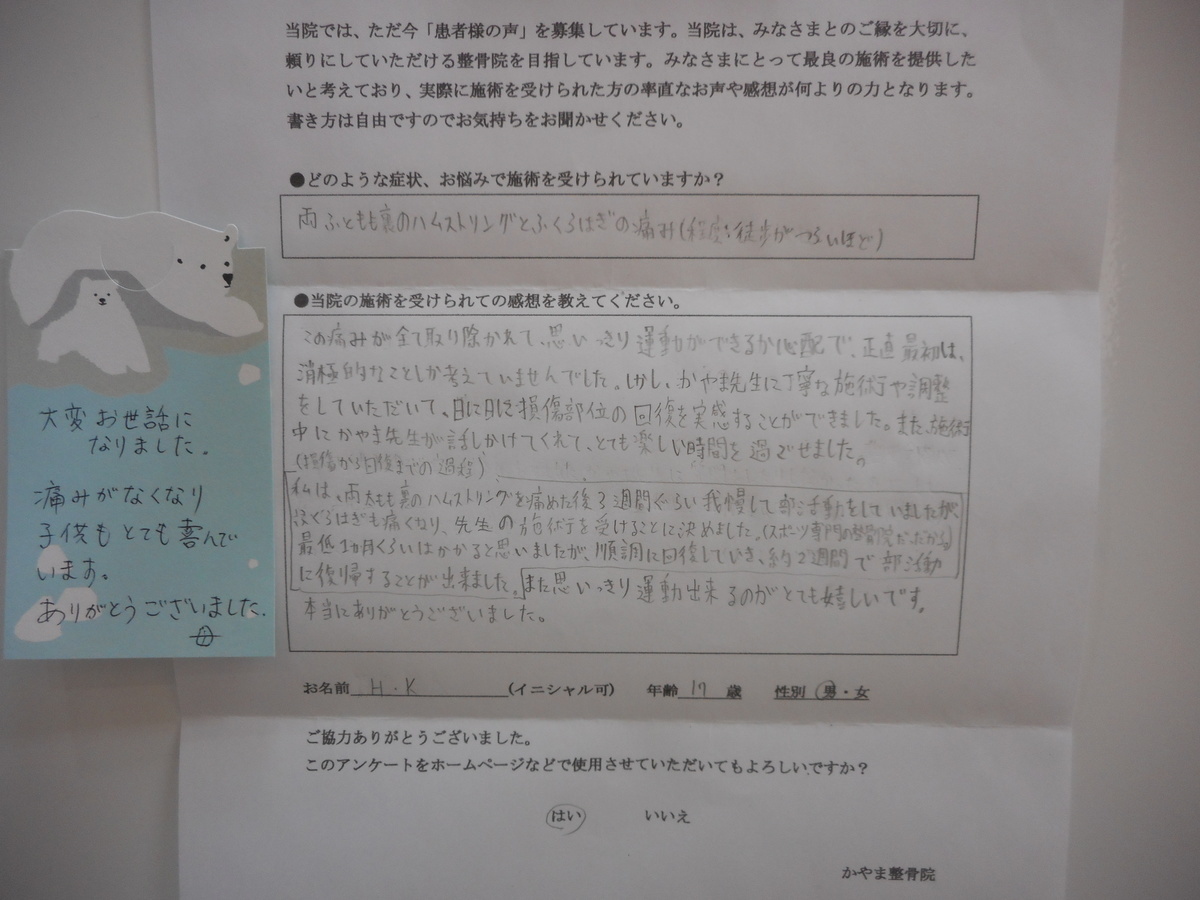 当院では、ただ今「患者様の声」を募集しています。当院は、みなさまとのご縁を大切に、
頼りにしていただける整骨院を目指しています。みなさまにとって最良の施術を提供した
いと考えており、実際に施術を受けられた方の率直なお声や感想が何よりの力となります。
書き方は自由ですのでお気持ちをお聞かせください。
●どのような症状、お悩みで施術を受けられていますか？
両ふともも裏のハムストリングとふくらはぎの痛み(程度:徒歩がつらいほど)
●当院の施術を受けられての感想を教えてください。
この痛みが全て取り除かれて、思いっきり運動ができるか心配で、正直最初は、
消極的なことしか考えていませんでした。しかし、かやま先生に丁寧な施術や調整
をしていただいて、日に日に損傷部位の回復を実感することができました。また、施術
中にかやま先生が話しかけてくれて、とても楽しい時間を過ごせました。
(損傷から回復までの過程)
私は、両太もも裏のハムストリングを痛めた後3週間ぐらい我慢して部活動をしていましたが、
ふくらはぎも痛くなり、先生の施術を受けることに決めました。(スポーツ専門の整骨院だったから)
最低1カ月くらいはかかると思いましたが、順調に回復していき、約2週間で部活動
に復帰することが出来ました。また思いっきり運動出来るのがとても嬉しいです。
本当にありがとうございました。
お名前 H.K (イニシャル可) 年齢 17 歳 性別 男・女
ご協力ありがとうございました。
このアンケートをホームページなどで使用させていただいてもよろしいですか？
はい いいえ
かやま整骨院
大変お世話に
なりました。
痛みがなくなり
子供もとても喜んで
います。
ありがとうございました。
母